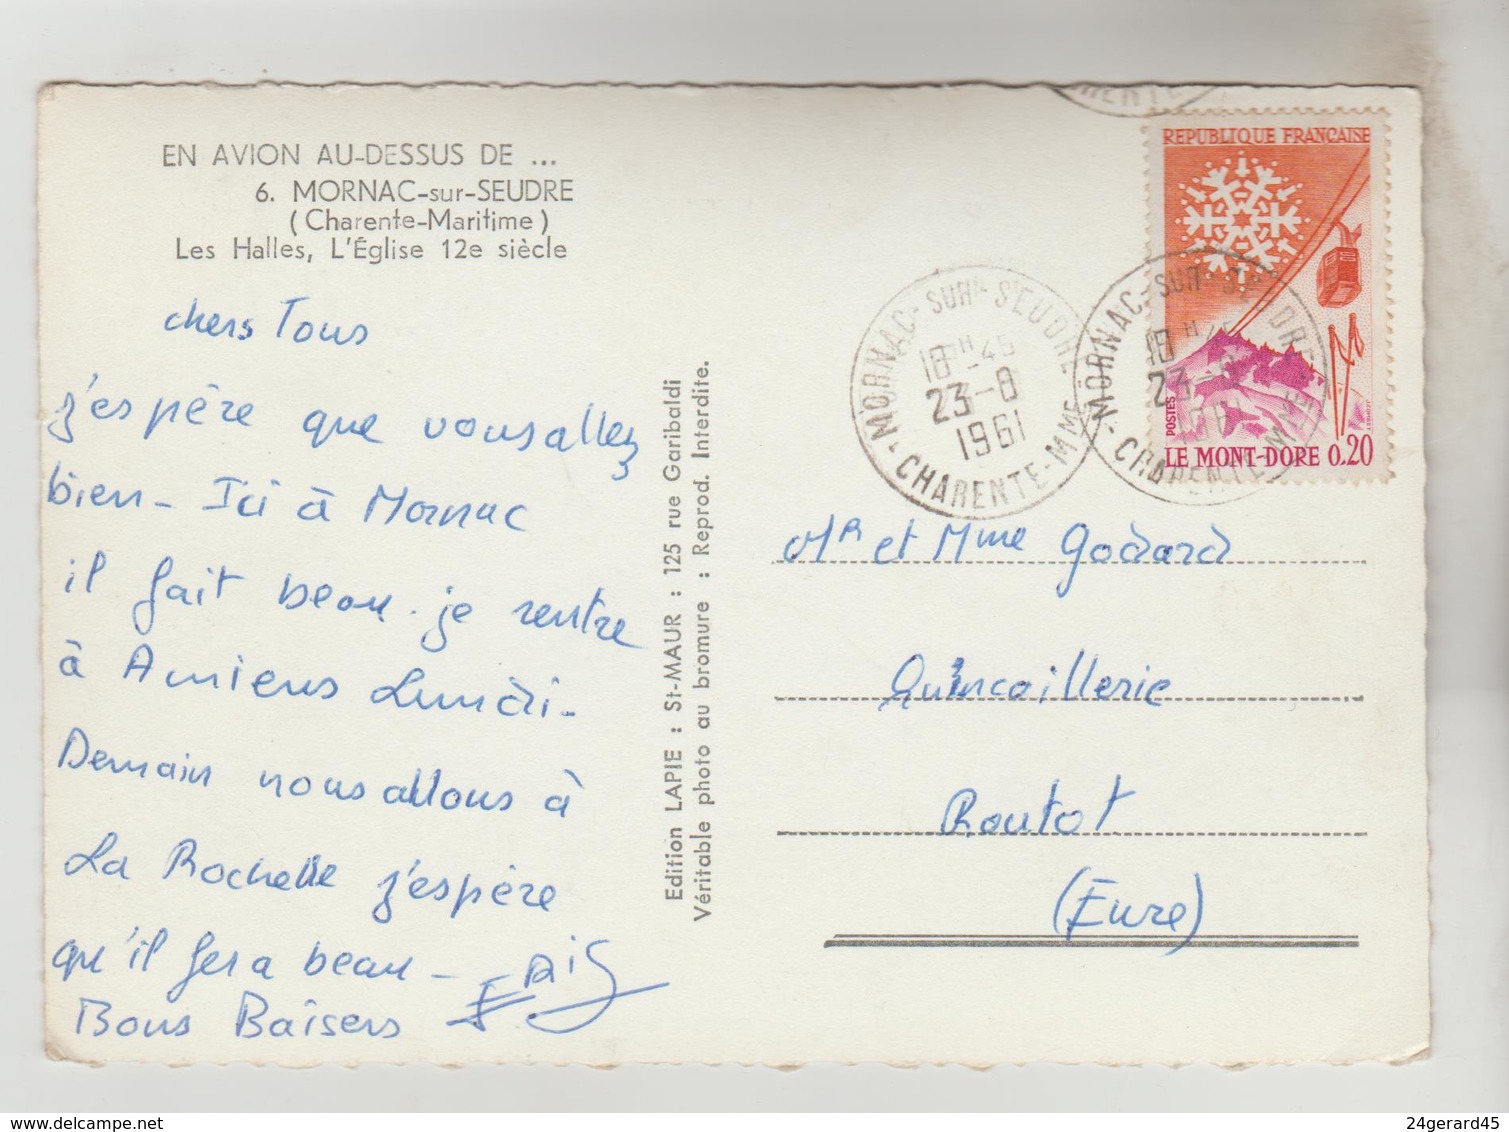 EN AVION AU-DESSUS DE ...
6. MORNAC-sur-SEUDRE
(Charente-Maritime)
Les Halles, L'Église 12e siècle
chers Tous
j'espère que vous allez
bien - Ici à Mornac
il fait beau. je rentre
à Amiens Lundi -
Demain nous allons à
La Rochelle j'espère
qu'il fera beau -
Bons Baisers
Edition LAPIE : St-MAUR : 125 rue Garibaldi
Véritable photo au bromure : Reprod. Interdite.
MENTE
REPUBLIQUE FRANÇAISE
POSTES
LE MONT-DORE 0,20
MORNAC-SUR-SEUDRE
18H45
23-8
1961
CHARENTE-MME
MORNAC-SUR-SEUDRE
18H
23-8
1961
CHARENTE-MME
Mr et Mme Godard
Quincaillerie
Routot
(Eure)
www.delcampe.net
24gerard45